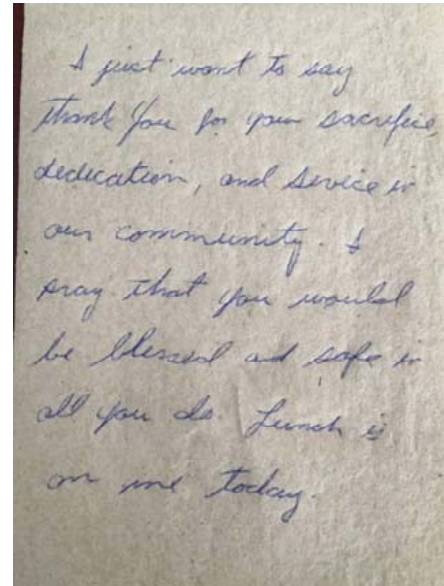 I just want to say
thank you for your sacrifice,
dedication, and service in
our community. I
pray that you would
be blessed and safe in
all you do. Lunch is
on me today.